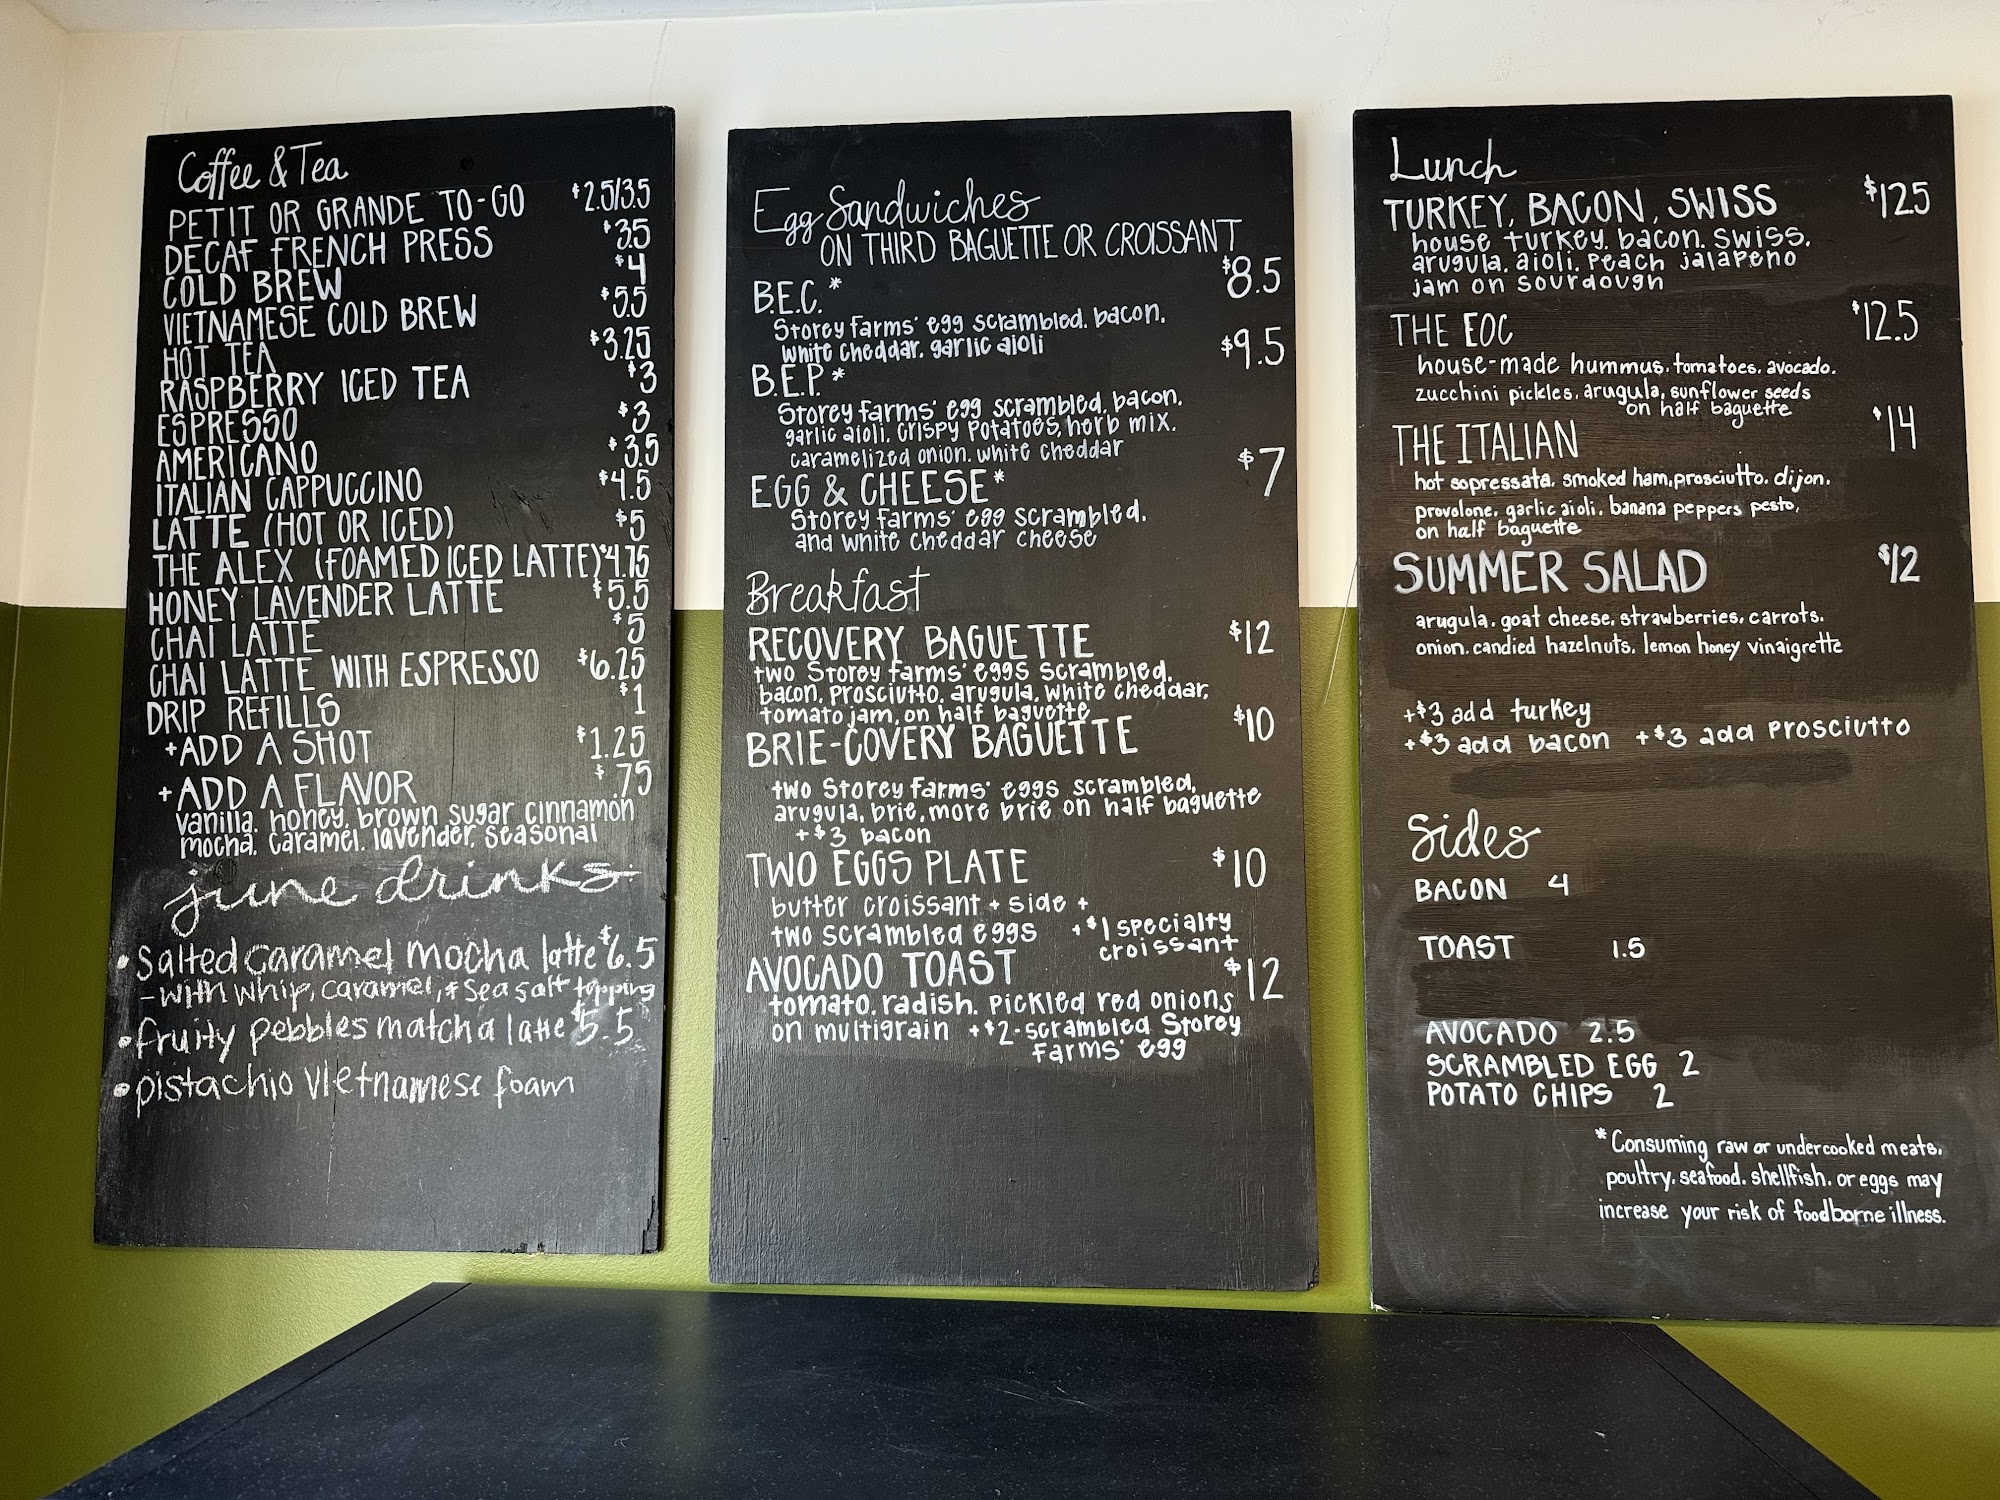 Coffee & Tea
PETIT OR GRANDE TO-GO $2.5/3.5
DECAF FRENCH PRESS $3.5
COLD BREW $4
VIETNAMESE COLD BREW $5.5
HOT TEA $3.25
RASPBERRY ICED TEA $3
ESPRESSO $3
AMERICANO $3.5
ITALIAN CAPPUCCINO $4.5
LATTE (HOT OR ICED) $5
THE ALEX (FOAMED ICED LATTE) $4.75
HONEY LAVENDER LATTE $5.5
CHAI LATTE $5
CHAI LATTE WITH ESPRESSO $6.25
DRIP REFILLS $1
+ADD A SHOT $1.25
+ADD A FLAVOR $.75
vanilla, honey, brown sugar cinnamon
mocha, caramel, lavender, seasonal
june drinks:
•Salted caramel mocha latte $6.5
-with whip, caramel, + sea salt topping
•fruity pebbles matcha latte $5.5
•pistachio vietnamese foam
Egg Sandwiches
ON THIRD BAGUETTE OR CROISSANT
B.E.C.* $8.5
Storey Farms' egg scrambled, bacon,
white cheddar, garlic aioli
B.E.P.* $9.5
Storey Farms' egg scrambled, bacon,
garlic aioli, crispy potatoes, herb mix,
caramelized onion, white cheddar
EGG & CHEESE* $7
Storey Farms' egg scrambled,
and white cheddar cheese
Breakfast
RECOVERY BAGUETTE $12
two Storey Farms' eggs scrambled,
bacon, prosciutto, arugula, white cheddar,
tomato jam, on half baguette
BRIE-COVERY BAGUETTE $10
two Storey Farms' eggs scrambled,
arugula, brie, more brie on half baguette
+$3 bacon
TWO EGGS PLATE $10
butter croissant + side +
two scrambled eggs +$1 specialty
croissant
AVOCADO TOAST $12
tomato, radish, pickled red onions
on multigrain +$2-scrambled Storey
Farms' egg
Lunch
TURKEY, BACON, SWISS $12.5
house turkey, bacon, swiss,
arugula, aioli, peach jalapeno
jam on sourdough
THE EOC $12.5
house-made hummus, tomatoes, avocado,
zucchini pickles, arugula, sunflower seeds
on half baguette
THE ITALIAN $14
hot sopressata, smoked ham, prosciutto, dijon,
provolone, garlic aioli, banana peppers pesto,
on half baguette
SUMMER SALAD $12
arugula, goat cheese, strawberries, carrots,
onion, candied hazelnuts, lemon honey vinaigrette
+$3 add turkey
+$3 add bacon +$3 add prosciutto
Sides
BACON 4
TOAST 1.5
AVOCADO 2.5
SCRAMBLED EGG 2
POTATO CHIPS 2
*Consuming raw or undercooked meats,
poultry, seafood, shellfish, or eggs may
increase your risk of foodborne illness.